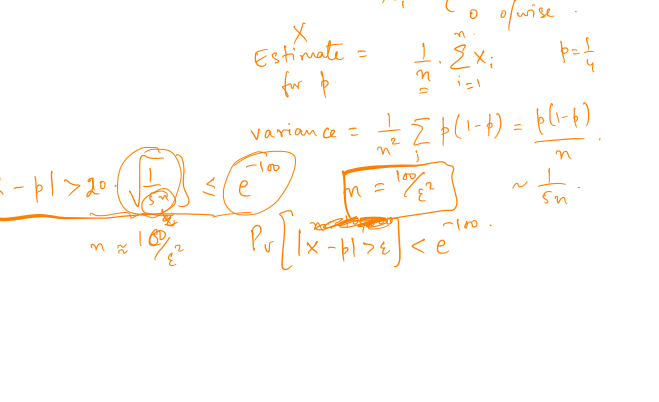 0 o/wise.
X
Estimate = 1/n · Σ_{i=1}^{n} X_i p = 1/4
for p
variance = 1/n² Σ_i p(1-p) = p(1-p)/n.
- p| > 20 · √(1/5n) ] ≤ e^{-100} n = 100/ε² ~ 1/5n.
n ≈ 100/ε² Pr[ |X - p| > ε ] < e^{-100}.